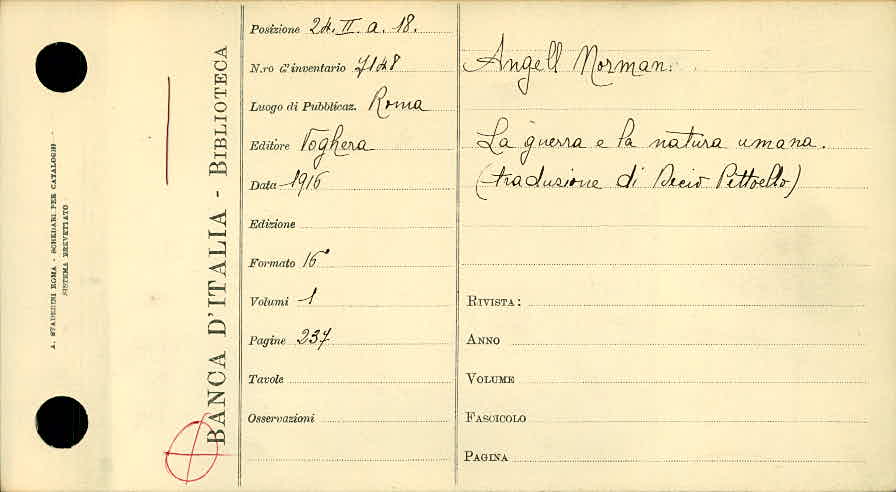 A. STADERINI ROMA - SCHEDARI PER CATALOGHI
SISTEMA BREVETTATO
BANCA D'ITALIA - BIBLIOTECA
Posizione 24. II. a. 18.
N.ro d'inventario 7148
Luogo di Pubblicaz. Roma
Editore Voghera
Data 1916
Edizione
Formato 16°
Volumi 1
Pagine 237
Tavole
Osservazioni
Angell Norman.
La guerra e la natura umana.
(traduzione di Decio Pettoello)
RIVISTA:
ANNO
VOLUME
FASCICOLO
PAGINA